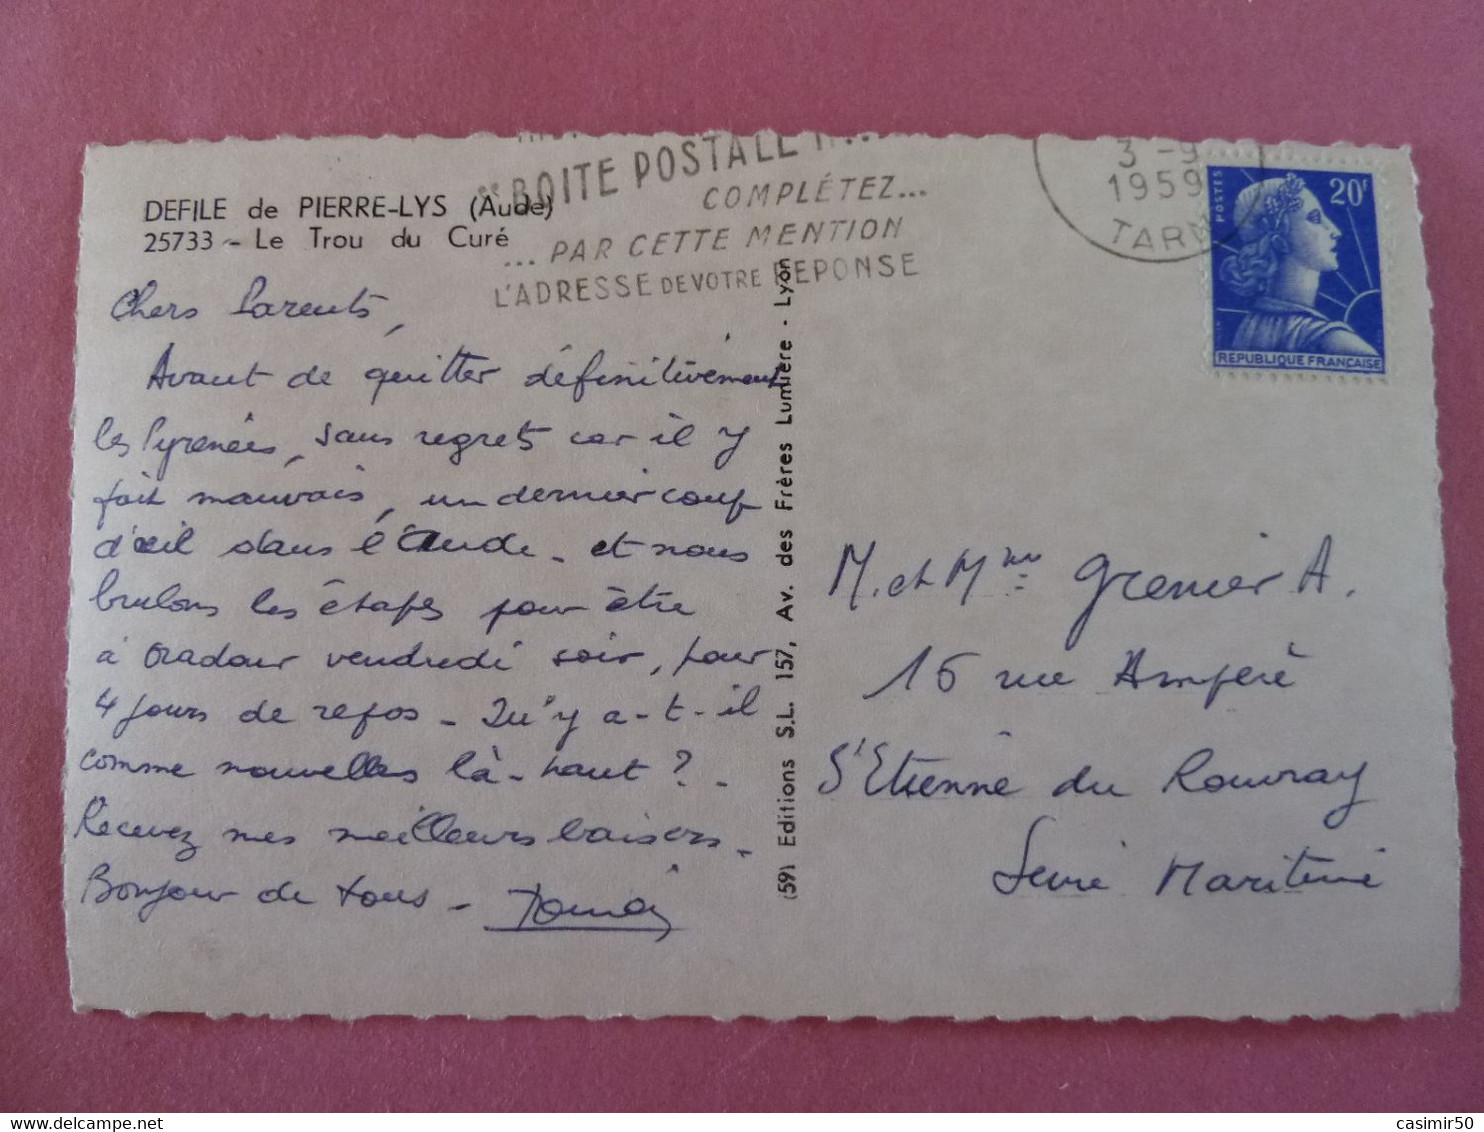 "BOITE POSTALE N...
COMPLÉTEZ...
... PAR CETTE MENTION
L'ADRESSE DE VOTRE REPONSE
3 - 9
1959
TARN
POSTES
20F
REPUBLIQUE FRANÇAISE
DEFILE de PIERRE-LYS (Aude)
25733 - Le Trou du Curé
Chers Parents,
Avant de quitter définitivement
les Pyrénées, sans regrets car il y
fait mauvais, un dernier coup
d'œil dans l'Aude - et nous
brulons les étapes pour être
à Oradour vendredi soir, pour
4 jours de repos - Qu'y a-t-il
comme nouvelles là-haut ? -
Recevez mes meilleurs baisers -
Bonjour de tous -
(59) Editions S.L. 157, Av. des Frères Lumière - Lyon
M. et Mme Grenier A.
15 rue Ampère
St Etienne du Rouvray
Seine Maritime
casimir50